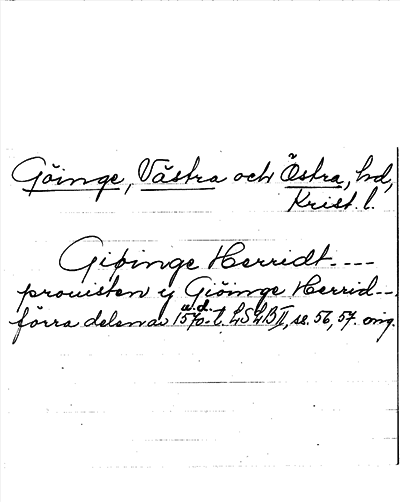 Göinge, Västra och Östra, hd,
Krist. l.
Giöinge Herridt ----
prouisten y Giöinge Herrid --
u. d.
förra delen av 1570-t. LSLB II, ss. 56, 57. orig.